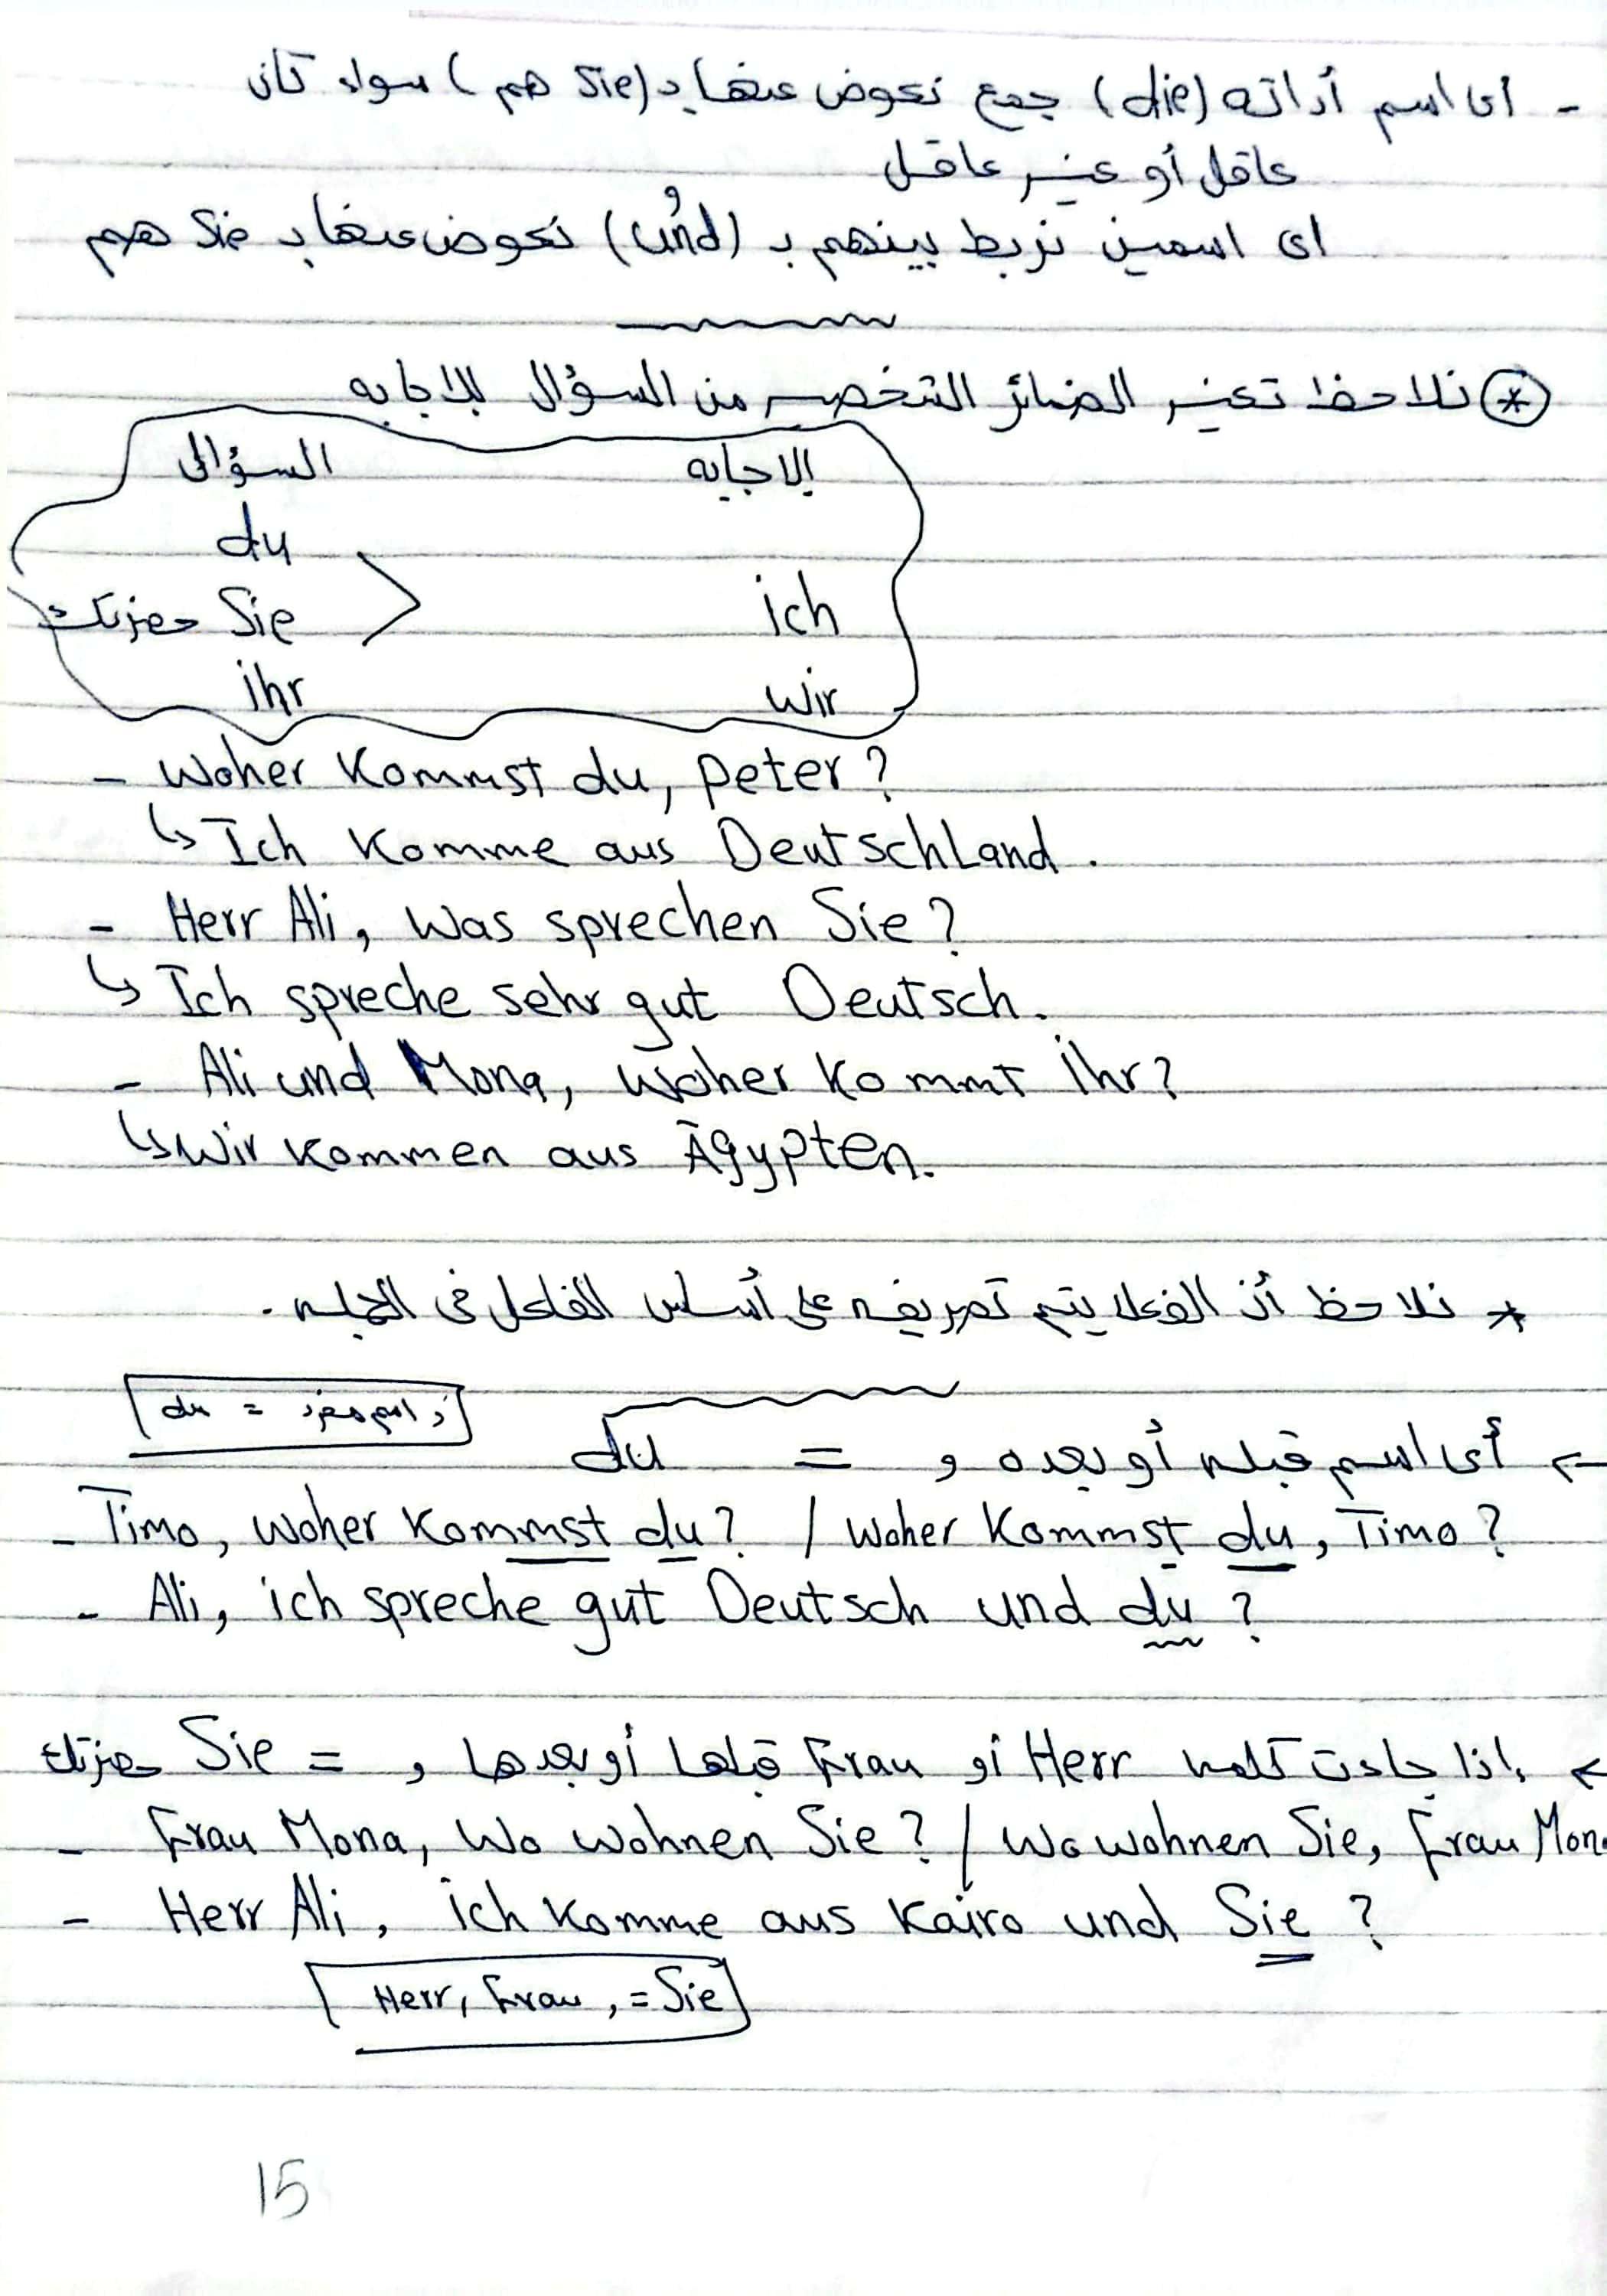 - اى اسم أداته (die) جمع نعوض عنها بـ (Sie هم) سواء كان
عاقل أو غير عاقل
اى اسمين نربط بينهم بـ (und) نعوض عنها بـ Sie هم
* نلاحظ تغير الضمائر الشخصيه من السؤال للاجابه
السؤال الاجابه
du
حضرتك Sie > ich
ihr wir
- Woher Kommst du, Peter?
↳ Ich Komme aus Deutschland.
- Herr Ali, Was sprechen Sie?
↳ Ich spreche sehr gut Deutsch.
- Ali und Mona, woher kommt ihr?
↳ Wir kommen aus Ägypten.
* نلاحظ أن الفعل يتم تصريفه على أساس الفاعل فى الجمله.
du = اسم مفرد ,
← أى اسم قبله أو بعده , = du
- Timo, woher Kommst du? / Woher Kommst du, Timo?
- Ali, ich spreche gut Deutsch und du?
← اذا جاءت كلمه Herr أو Frau قبلها أو بعدها , = Sie حضرتك
- Frau Mona, Wo wohnen Sie? / Wo wohnen Sie, Frau Mon
- Herr Ali, ich komme aus Kairo und Sie?
Herr, Frau , = Sie
15